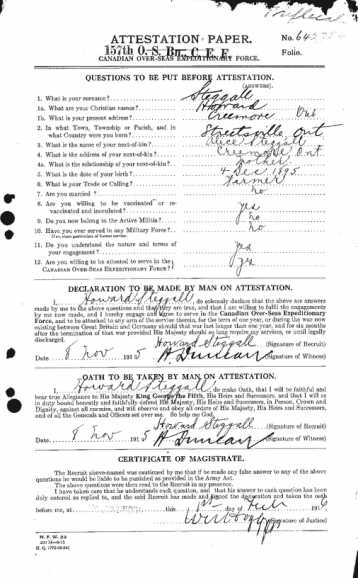 ATTESTATION PAPER.
No. 645
157th O. S. Bn., C. E. F.
Folio.
CANADIAN OVER-SEAS EXPEDITIONARY FORCE.
QUESTIONS TO BE PUT BEFORE ATTESTATION.
(ANSWERS).
1. What is your surname? Steggall
1a. What are your Christian names? Howard
1b. What is your present address? Creemore Ont
2. In what Town, Township or Parish, and in
what Country were you born? Streetsville, Ont
3. What is the name of your next-of-kin? Alice Steggall
4. What is the address of your next-of-kin? Creemore, Ont
4a. What is the relationship of your next-of-kin? Mother
5. What is the date of your birth? 4 Dec 1895
6. What is your Trade or Calling? Farmer
7. Are you married? no
8. Are you willing to be vaccinated or re-
vaccinated and inoculated? yes
9. Do you now belong to the Active Militia? no
10. Have you ever served in any Military Force? no
If so, state particulars of former service.
11. Do you understand the nature and terms of
your engagement? yes
12. Are you willing to be attested to serve in the
CANADIAN OVER-SEAS EXPEDITIONARY FORCE? yes
DECLARATION TO BE MADE BY MAN ON ATTESTATION.
I, Howard Steggall, do solemnly declare that the above are answers
made by me to the above questions and that they are true, and that I am willing to fulfil the engagements
by me now made, and I hereby engage and agree to serve in the Canadian Over-Seas Expeditionary
Force, and to be attached to any arm of the service therein, for the term of one year, or during the war now
existing between Great Britain and Germany should that war last longer than one year, and for six months
after the termination of that war provided His Majesty should so long require my services, or until legally
discharged.
Howard Steggall (Signature of Recruit)
Date 8 Nov 1915 Duncan (Signature of Witness)
OATH TO BE TAKEN BY MAN ON ATTESTATION.
I, Howard Steggall, do make Oath, that I will be faithful and
bear true Allegiance to His Majesty King George the Fifth, His Heirs and Successors, and that I will as
in duty bound honestly and faithfully defend His Majesty, His Heirs and Successors, in Person, Crown and
Dignity, against all enemies, and will observe and obey all orders of His Majesty, His Heirs and Successors,
and of all the Generals and Officers set over me. So help me God.
Howard Steggall (Signature of Recruit)
Date 8 Nov 1915 Duncan (Signature of Witness)
CERTIFICATE OF MAGISTRATE.
The Recruit above-named was cautioned by me that if he made any false answer to any of the above
questions he would be liable to be punished as provided in the Army Act.
The above questions were then read to the Recruit in my presence.
I have taken care that he understands each question, and that his answer to each question has been
duly entered as replied to, and the said Recruit has made and signed the declaration and taken the oath
before me, at this 1st day of Feb 1916
(Signature of Justice)
M. F. W. 23